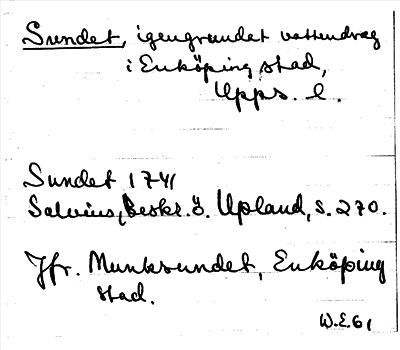 Sundet, igengrundet vattendrag
i Enköping stad,
Upps. l.
Sundet 1741
Salvius, Beskr. ö. Upland, s. 270.
Jfr. Munksundet, Enköping
stad.
W.E.61